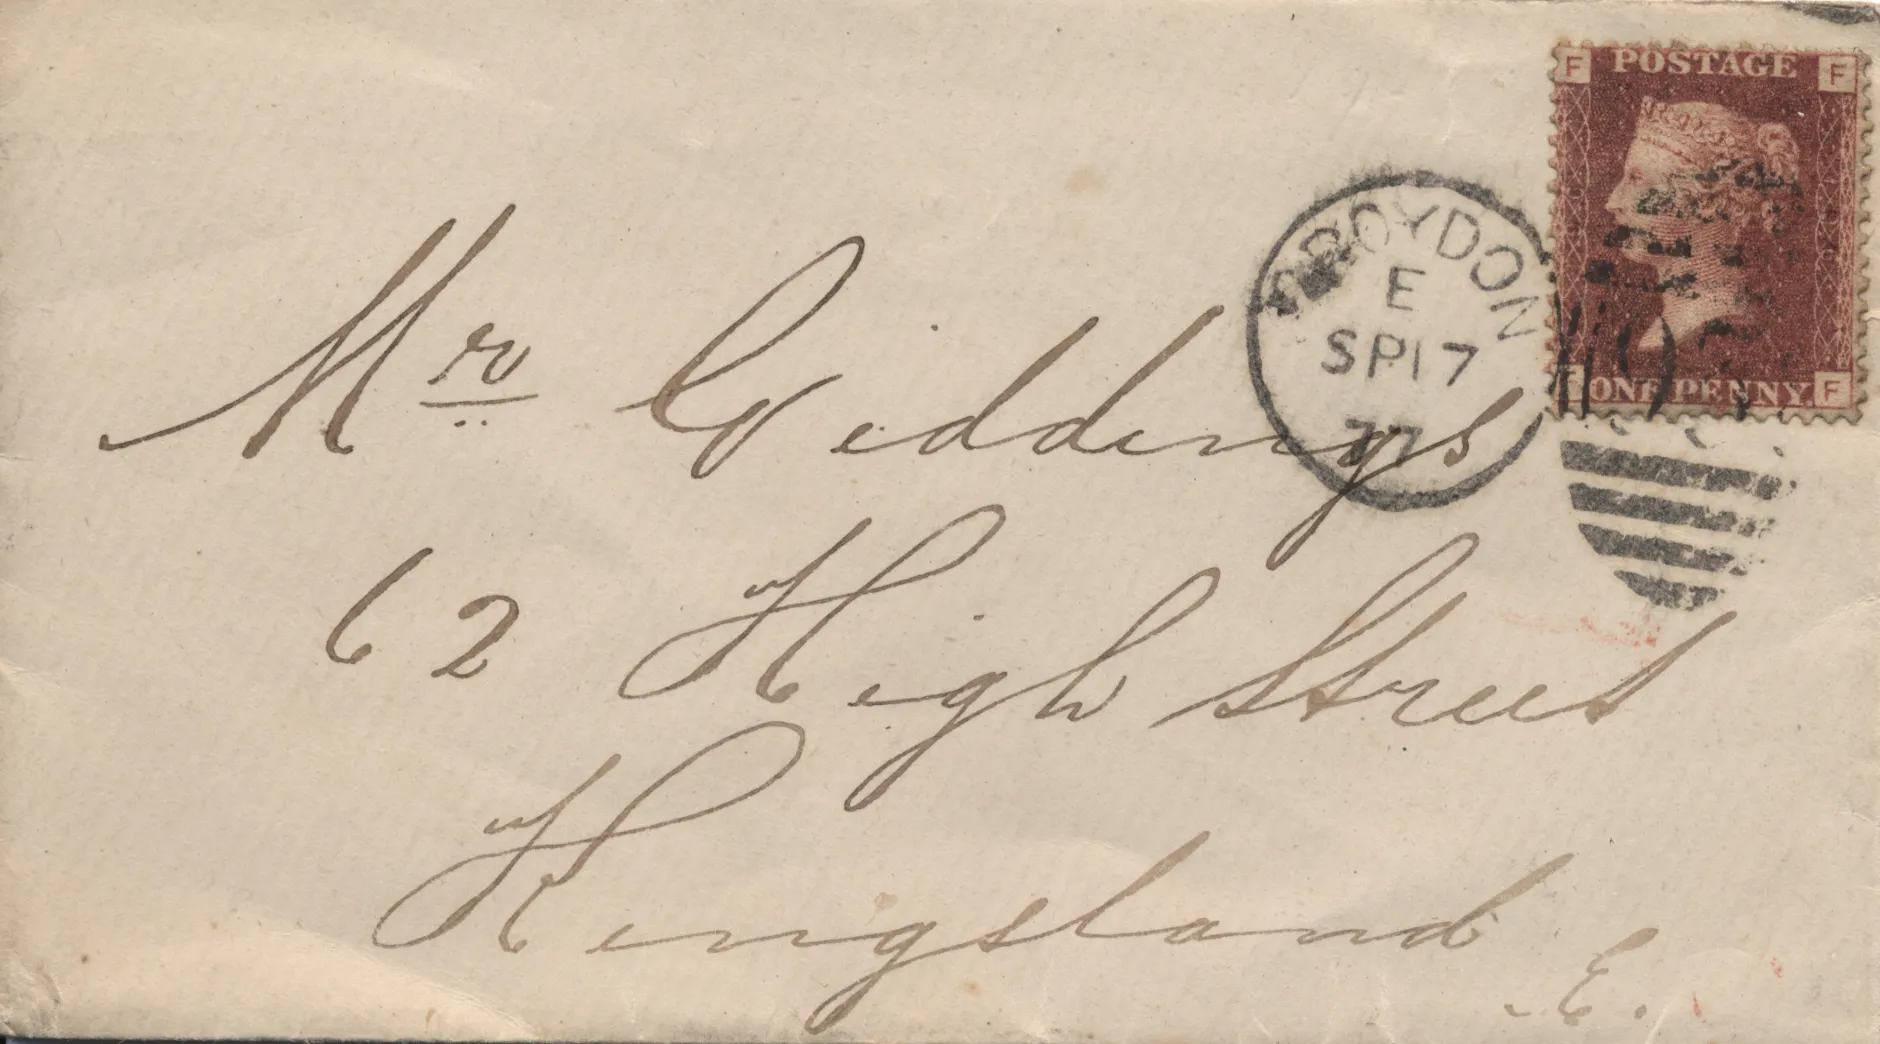 F POSTAGE F
CROYDON
E
SP 17
77
F ONE PENNY. F
Mrs Giddings
62 High Street
Kingsland
E.